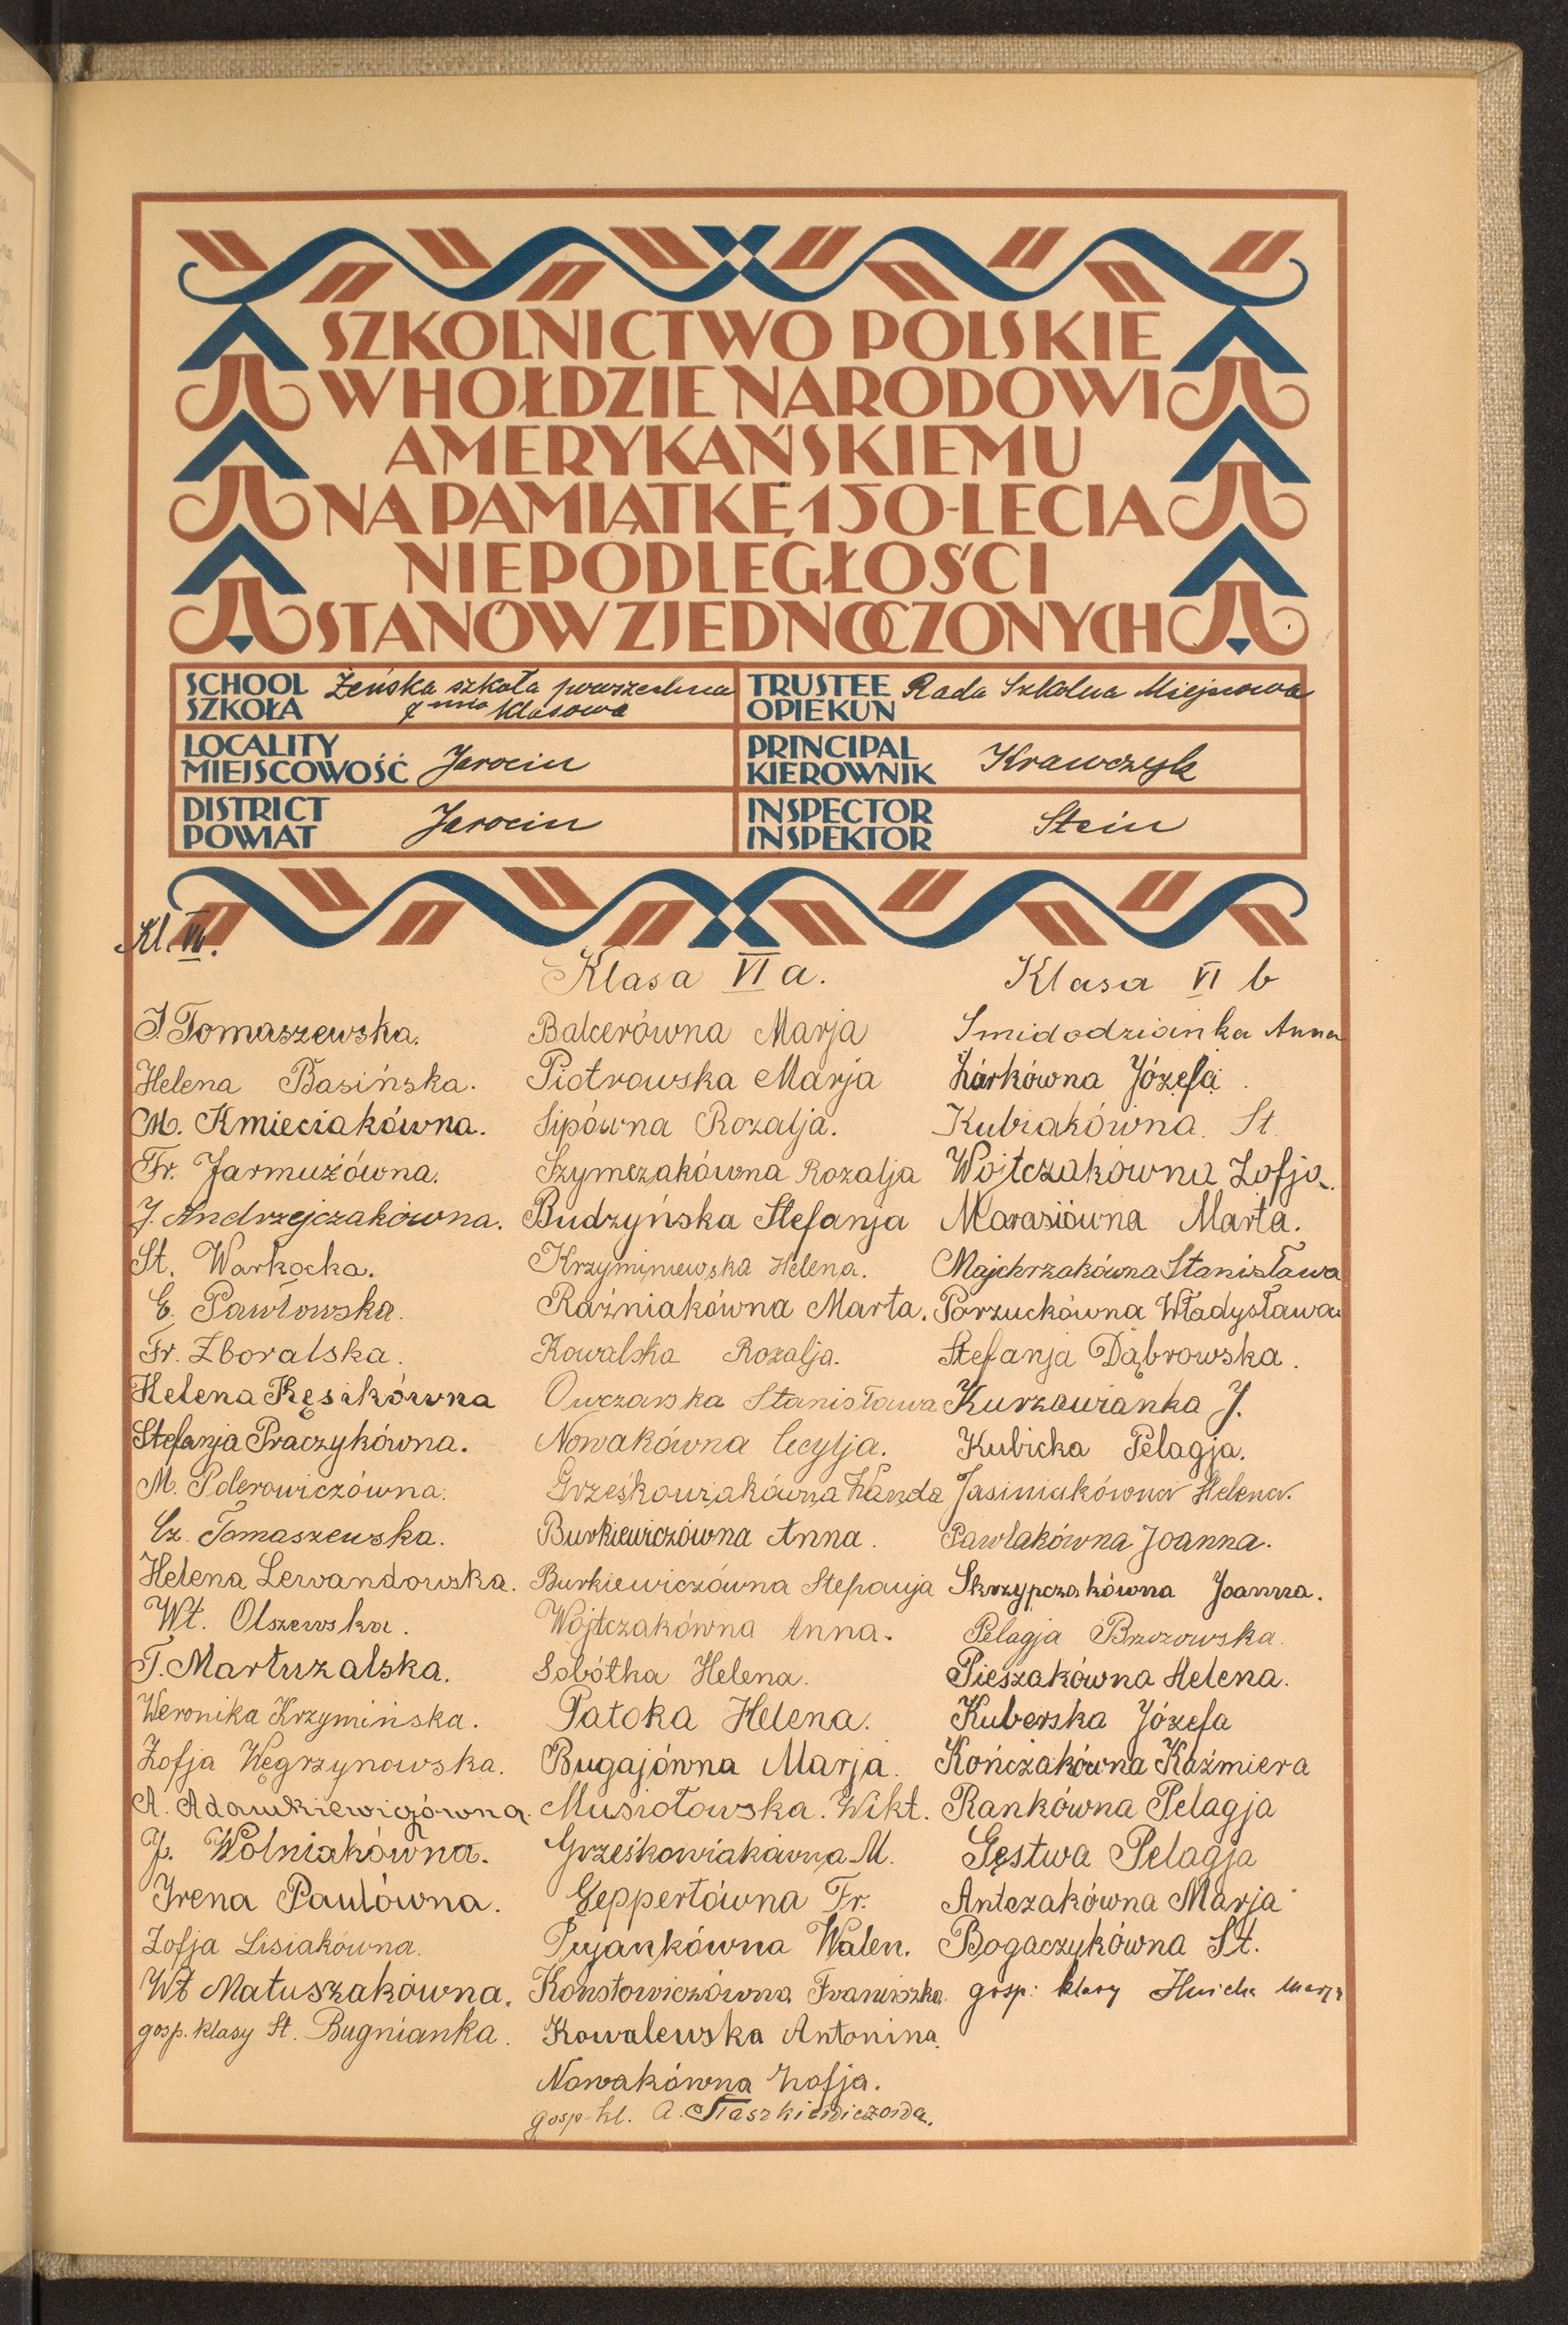 SZKOLNICTWO POLSKIE
W HOŁDZIE NARODOWI
AMERYKAŃSKIEMU
NA PAMIĄTKĘ 150-LECIA
NIEPODLEGŁOŚCI
STANÓW ZJEDNOCZONYCH
SCHOOL
SZKOŁA
Żeńska szkoła powszechna
7 mio klasowa
TRUSTEE
OPIEKUN
Rada Szkolna Miejscowa
LOCALITY
MIEJSCOWOŚĆ
Jarocin
PRINCIPAL
KIEROWNIK
Krawczyk
DISTRICT
POWIAT
Jarocin
INSPECTOR
INSPEKTOR
Stein
Kl.
J. Tomaszewska.
Helena Basińska.
M. Kmieciakówna.
Fr. Jarmużówna.
J. Andrzejczakówna.
St. Warkocka.
E. Pawłowska.
Fr. Zboralska.
Helena Kęsikówna
Stefanja Praczykówna.
M. Pderowiczówna.
Cz. Tomaszewska.
Helena Lewandowska.
Wł. Olszewska.
T. Martuzalska.
Weronika Krzymińska.
Zofja Węgrzynowska.
A. Adamkiewiczówna.
J. Wolniakówna.
Irena Paulówna.
Zofja Lisiakówna.
Wł Matuszakówna.
gosp. klasy St. Bugnianka.
Klasa VI a.
Balcerówna Marja
Piotrowska Marja
Sipówna Rozalja.
Szymczakówna Rozalja
Budzyńska Stefanja
Krzyminiewska Helena.
Raźniakówna Marta.
Kowalska Rozalja.
Owczarska Stanisława
Nowakówna Cecylja.
Grześkowiakówna Wanda
Burkiewiczówna Anna.
Burkiewiczówna Stefanja
Wojtczakówna Anna.
Sobótka Helena.
Patoka Helena.
Bugajówna Marja.
Musiołowska. Wikt.
Grześkowiakówna M.
Geppertówna Fr.
Pujankówna Walen.
Konstowiczówna Franciszka.
Kowalewska Antonina.
Nowakówna Zofja.
gosp. kl. A. Staszkiewiczowa.
Klasa VI b
Smidodzianka Anna
Żarkówna Józefa.
Kubiakówna. St.
Wojtczakówna Zofja.
Marasiówna Marta.
Majchrzakówna Stanisława
Porzuckówna Władysława.
Stefanja Dąbrowska.
Kurzawianka J.
Kubicka Pelagja.
Jasiniakówna Helena.
Pawlakówna Joanna.
Skrzypczakówna Joanna.
Pelagja Brzozowska.
Pieszakówna Helena.
Kuberska Józefa
Kończakówna Kaźmiera
Rankówna Pelagja
Gęstwa Pelagja
Antczakówna Marja
Bogaczykówna St.
gosp. klasy